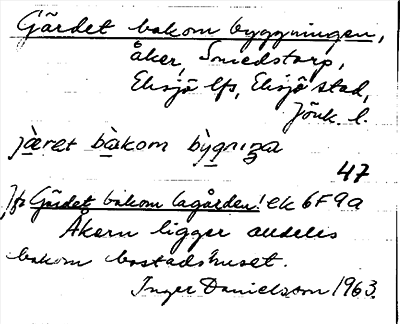 Gärdet bakom byggningen,
åker, Smedstorp,
Eksjö lfs, Eksjö stad,
Jönk. l.
jæ̀rət bàkom bỳgniŋa
47
Jfr Gärdet bakom lagården! ek 6F9a
Åkern ligger alldeles
bakom bostadshuset.
Inger Danielsson 1963.